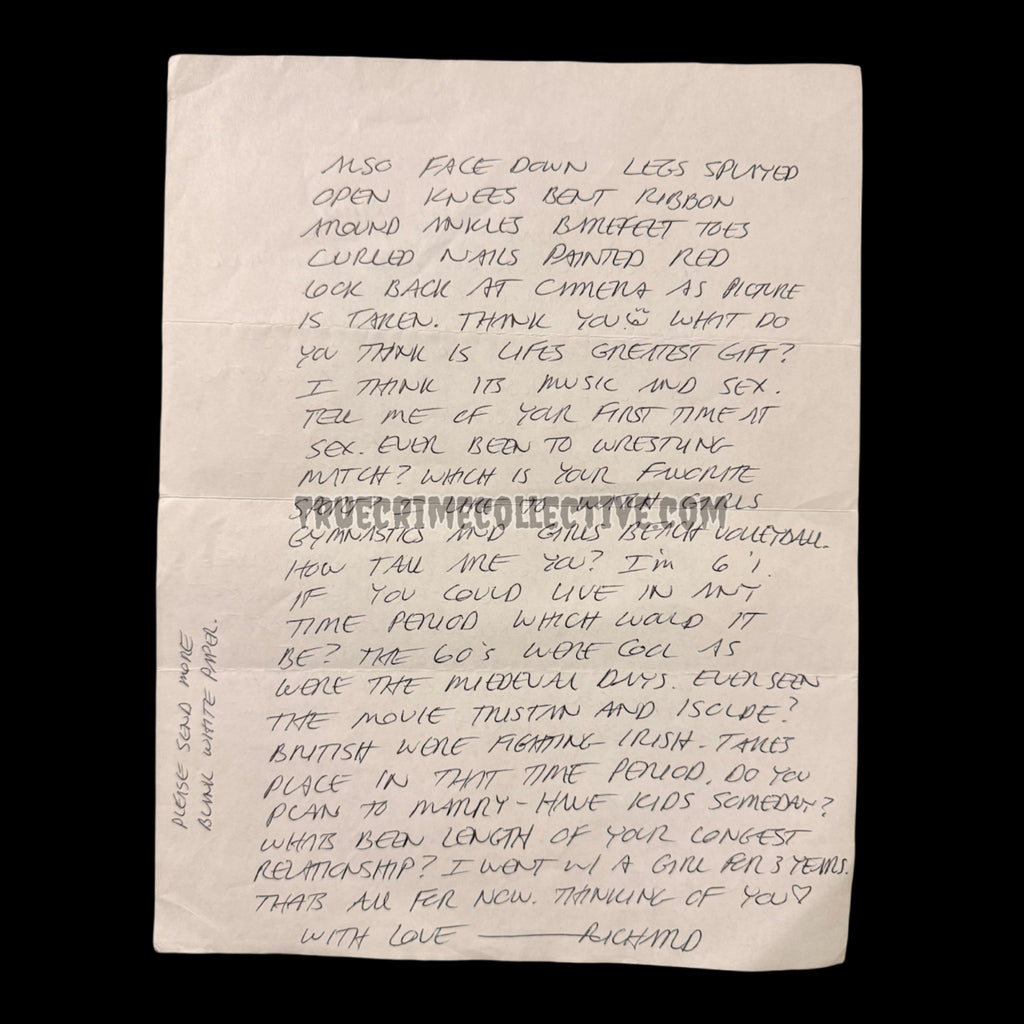 ALSO FACE DOWN LEGS SPLAYED
OPEN KNEES BENT RIBBON
AROUND ANKLES BAREFEET TOES
CURLED NAILS PAINTED RED
LOOK BACK AT CAMERA AS PICTURE
IS TAKEN. THANK YOU WHAT DO
YOU THINK IS LIFES GREATEST GIFT?
I THINK ITS MUSIC AND SEX.
TELL ME OF YOUR FIRST TIME AT
SEX. EVER BEEN TO WRESTLING
MATCH? WHICH IS YOUR FAVORITE
SPORT? I LIKE TO WATCH GIRLS
TRUECRIMECOLLECTIVE.COM
GYMNASTICS AND GIRLS BEACH VOLLEYBALL.
HOW TALL ARE YOU? I'm 6'1.
IF YOU COULD LIVE IN ANY
TIME PERIOD WHICH WOULD IT
BE? THE 60's WERE COOL AS
WERE THE MIEDEVAL DAYS. EVER SEEN
THE MOVIE TRISTAN AND ISOLDE?
BRITISH WERE FIGHTING IRISH - TAKES
PLACE IN THAT TIME PERIOD. DO YOU
PLAN TO MARRY - HAVE KIDS SOMEDAY?
WHATS BEEN LENGTH OF YOUR LONGEST
RELATIONSHIP? I WENT W/ A GIRL FOR 3 YEARS.
THATS ALL FOR NOW. THINKING OF YOU♡
WITH LOVE — RICHARD
PLEASE SEND MORE
BLANK WHITE PAPER.